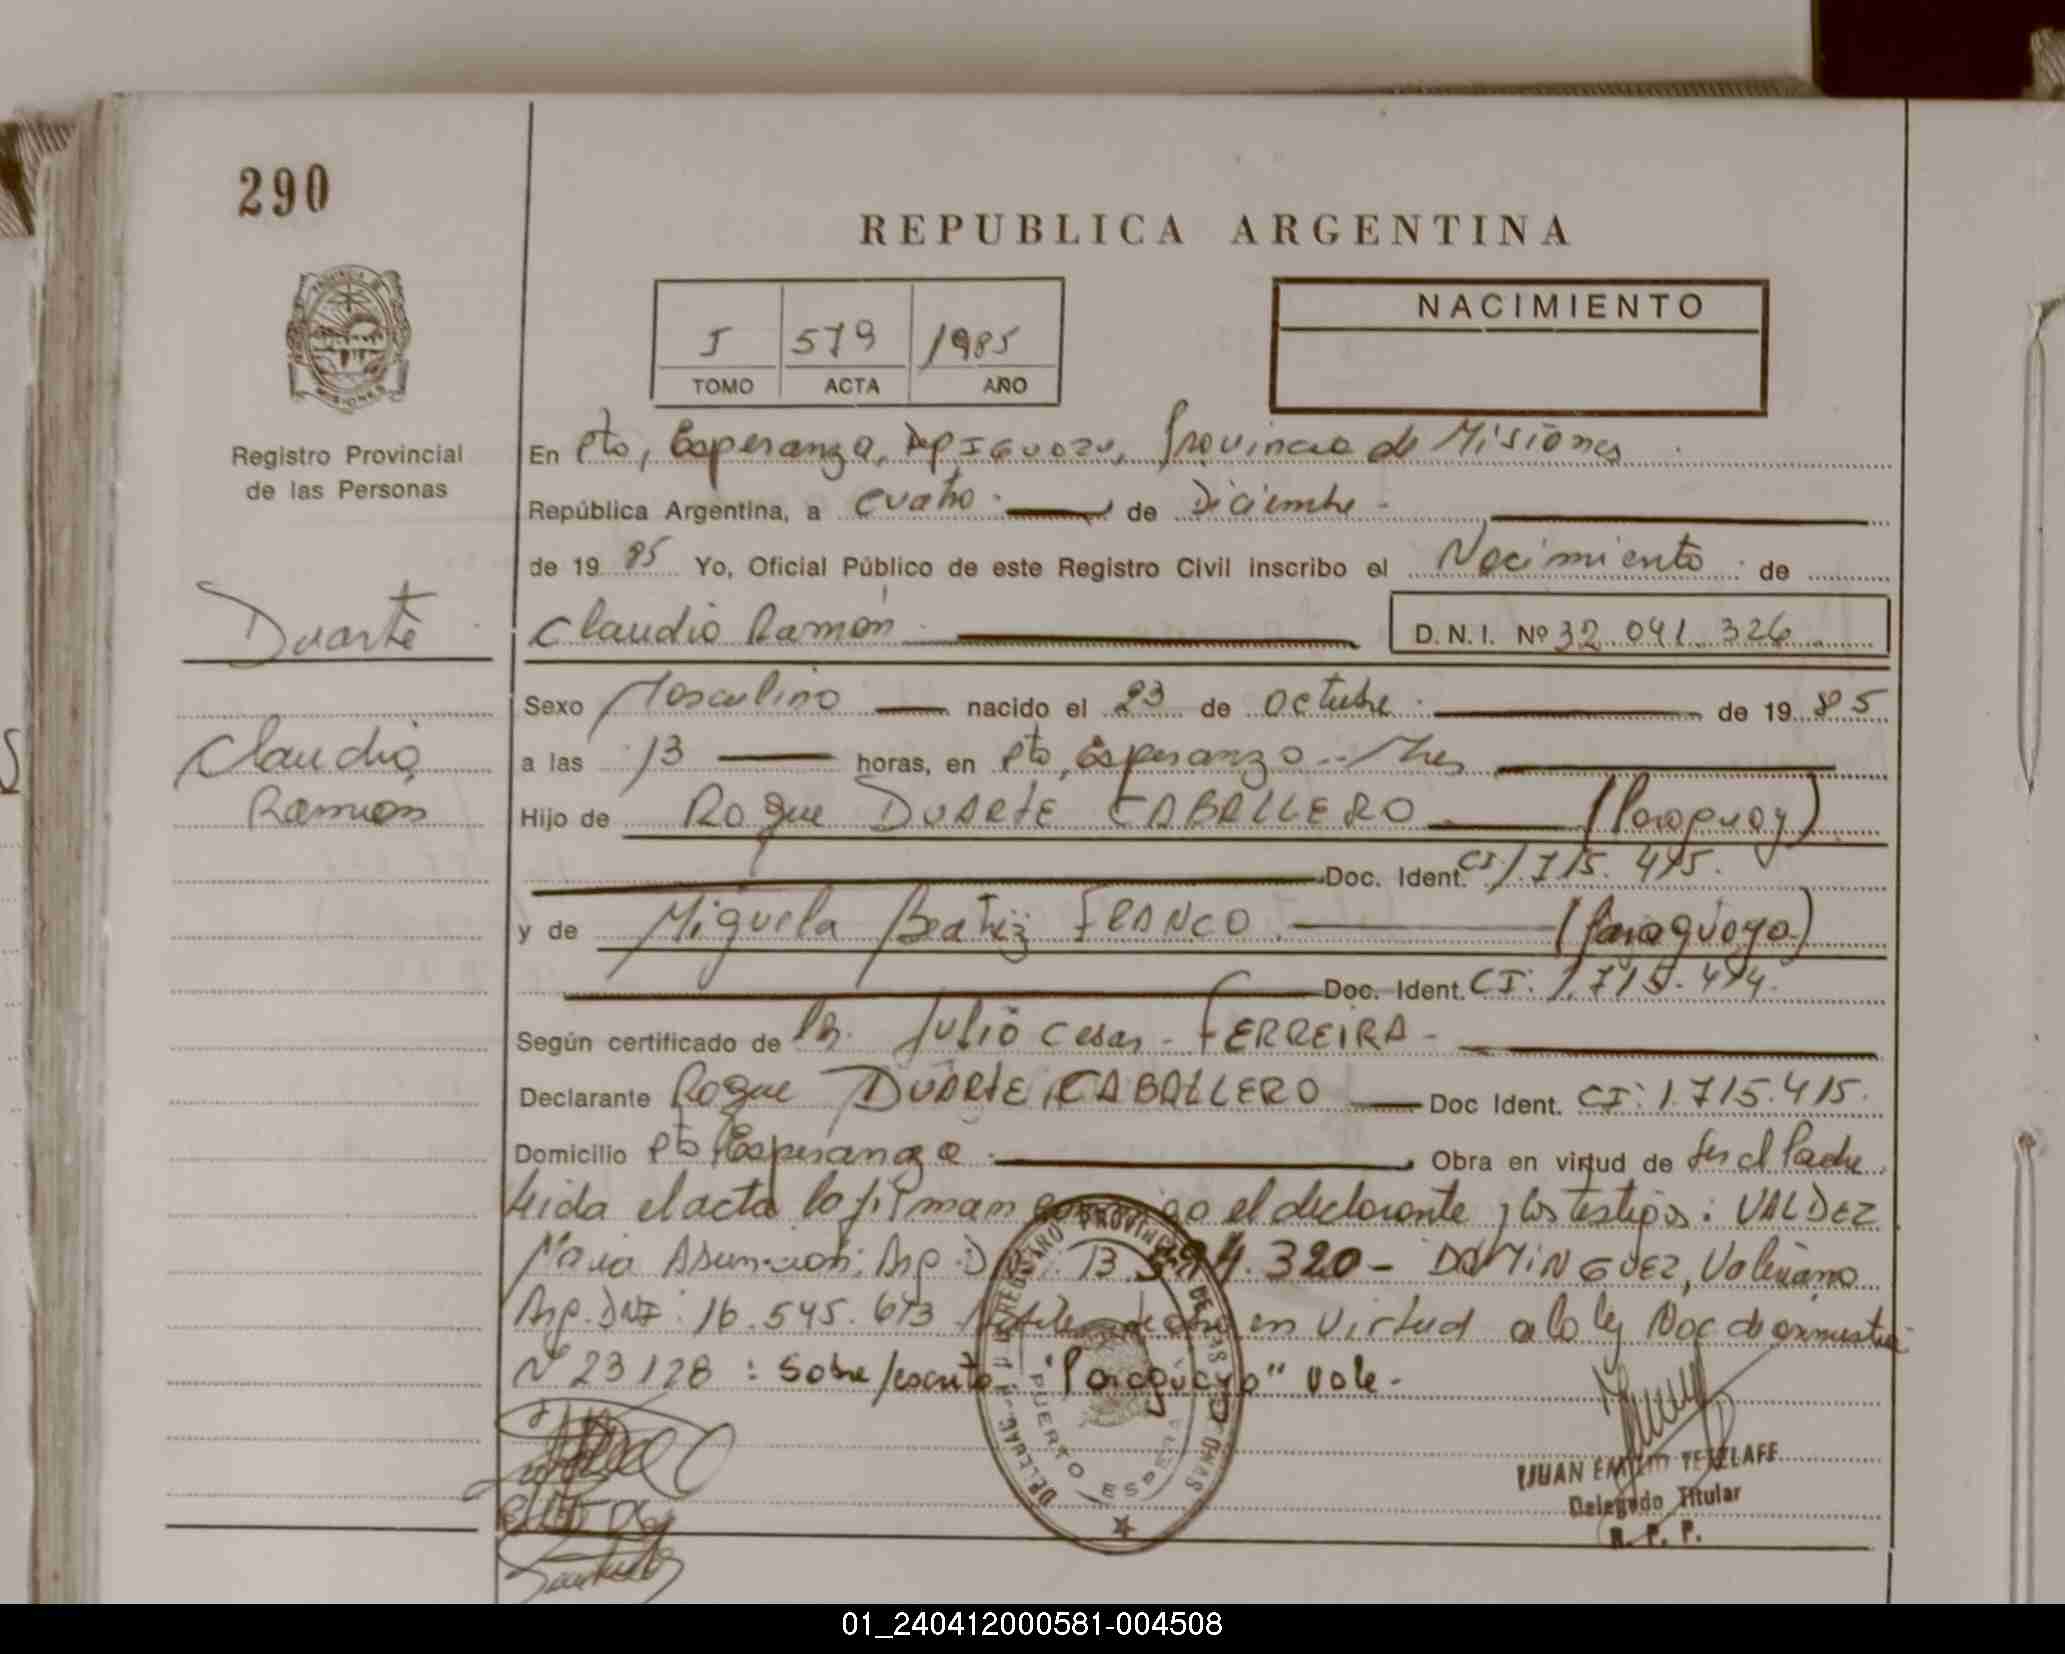 290
REPUBLICA ARGENTINA
NACIMIENTO
5 579 1985
TOMO ACTA AÑO
Registro Provincial
de las Personas
En Pto, Esperanza, Dp IGUAZU, Provincia de Misiones
República Argentina, a cuatro de Diciembre
de 19 85 Yo, Oficial Público de este Registro Civil inscribo el Nacimiento de
Duarte
Claudio Ramón D.N.I. Nº 32 041 326
Sexo Masculino nacido el 23 de octubre de 1985
Claudio
a las 13 horas, en Pto, Esperanza - Mnes
Ramon
Hijo de Roque DUARTE CABALLERO (Paraguay)
Doc. Ident. CI 1.715.415.
y de Miguela Beatriz FRANCO (Paraguaya)
Doc. Ident. CI: 1.715.414.
Según certificado de Dr. Julio Cesar - FERREIRA -
Declarante Roque DUARTE CABALLERO Doc Ident. CI: 1.715.415.
Domicilio Pto Esperanza Obra en virtud de ser el Padre
Leida el acta la firman conmigo el declarante y los testigos: VALDEZ
Maria Asuncion; Arg. 13. 320 - DOMINGUEZ, Valeriano
Arg. DNI: 16.545.673 en virtud a la ley Nac de amnistia
Nº 23128 : Sobre/escrito "Paraguaya" vale -
DELEGAC. REGISTRO PROVINC. DE LAS PERSONAS
PUERTO ESPERANZA
JUAN EMILIO TETZLAFF
Delegado Titular
R. P. P.
01_240412000581-004508